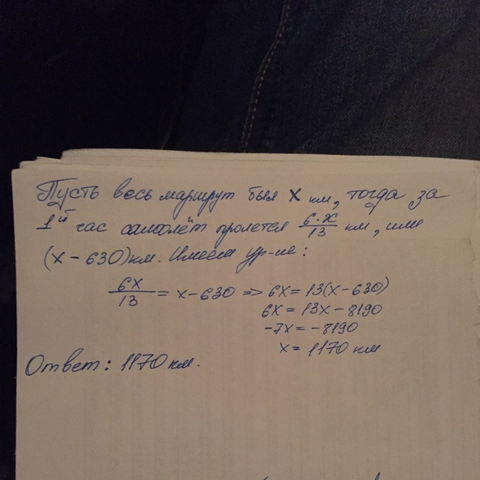 Пусть весь маршрут был x км, тогда за
1й час самолёт пролетел 6·x/13 км, или
(x-630) км. Имеем ур-ие:
6x/13 = x-630 => 6x = 13(x-630)
6x = 13x - 8190
-7x = -8190
x = 1170 км
Ответ: 1170 км.